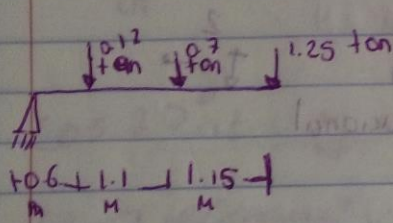 0.12 ton 0.7 ton 1.25 ton
0.6 1.1 1.15
M M M